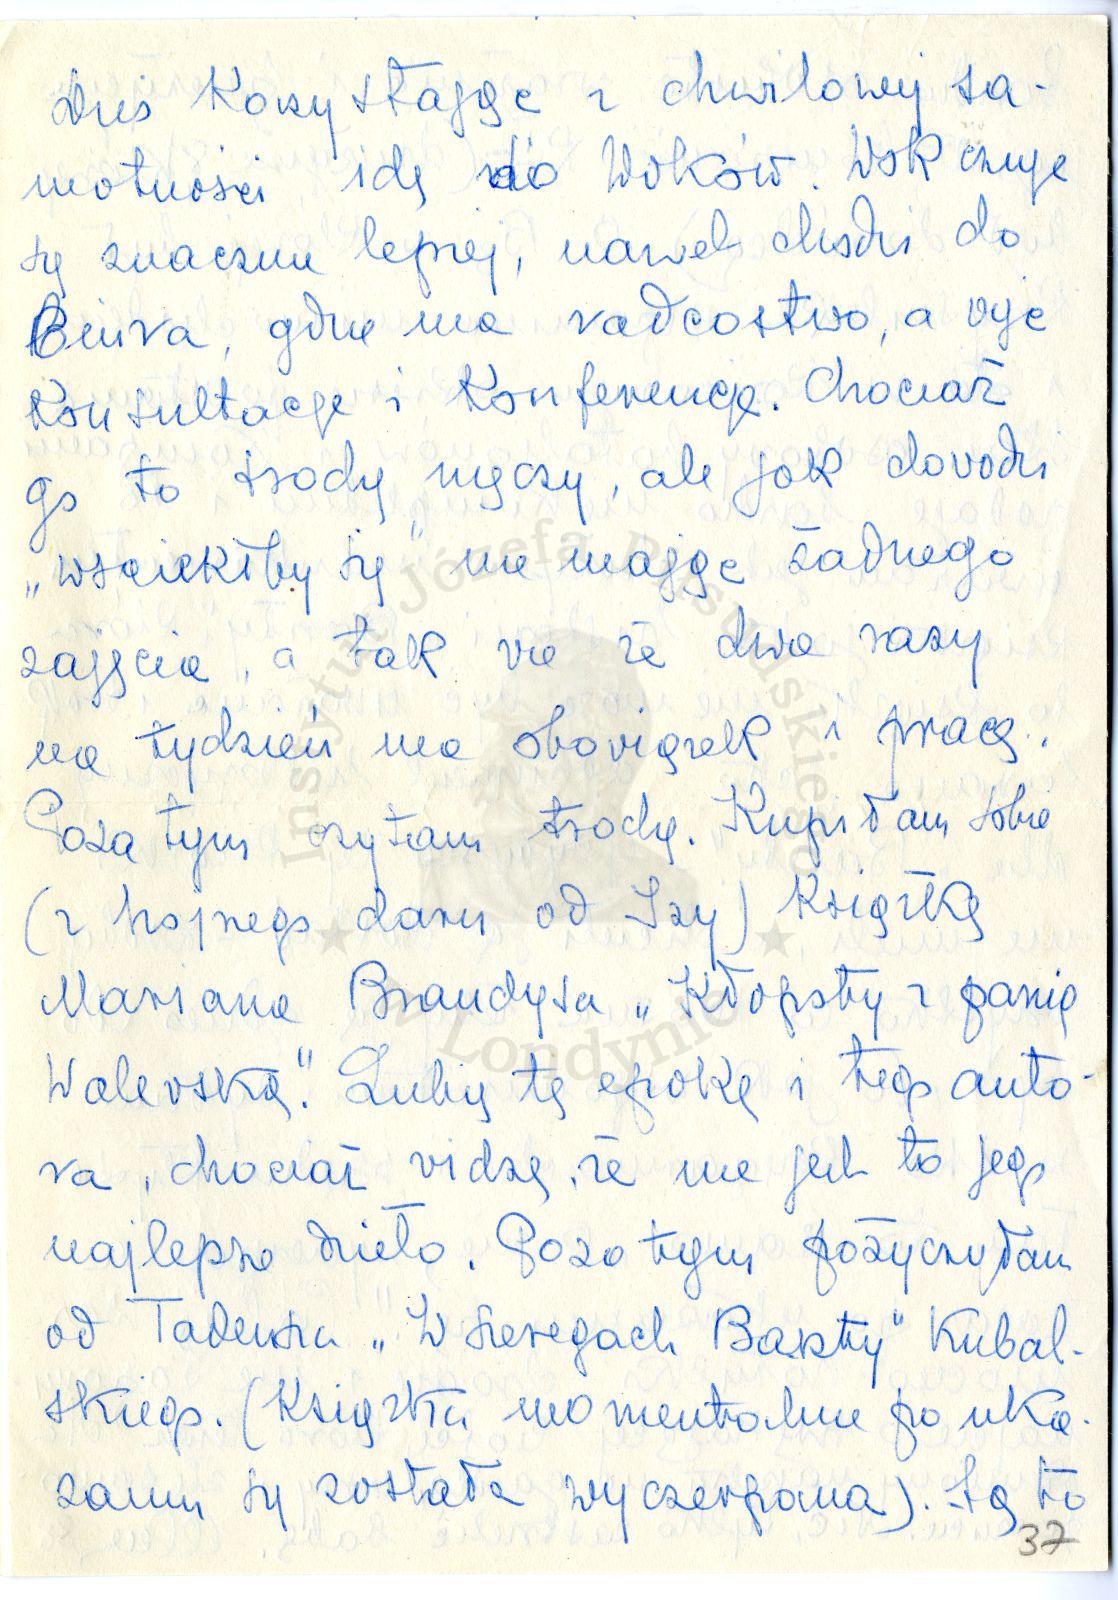 Dziś korzystając z chwilowej sa-
motności idę do Woków. Wok czuje
się znacznie lepiej, nawet chodzi do
Biura, gdzie ma radcostwo, a więc
konsultacje i konferencje. Chociaż
go to trochę męczy, ale jak dowodzi
„wściekłby się" nie mając żadnego
zajęcia, a tak wie że dwa razy
na tydzień ma obowiązek i pracę.
Poza tym czytam trochę. Kupiłam sobie
(z hojnego daru od Izy) książkę
Mariana Brandysa „Kłopoty z panią
Walewską". Lubię tę epokę i tego auto-
ra, chociaż widzę, że nie jest to jego
najlepsze dzieło. Poza tym pożyczyłam
od Tadeusza „W szeregach Baszty" Kubal-
skiego. (Książka momentalnie po uka-
zaniu się została wyczerpana). Są to
37
Instytut Józefa Piłsudskiego
w Londynie